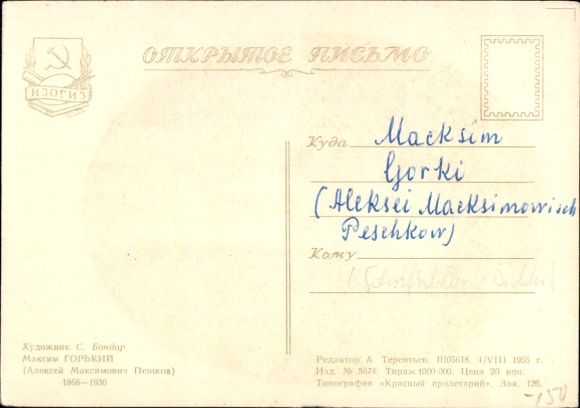 ИЗОГИЗ
ОТКРЫТОЕ ПИСЬМО
Куда
Macksim
Gorki
(Aleksei Macksimowisch
Peschkow)
Кому
(Schriftsteller - Dichter)
Художник С. Бондар
Максим ГОРЬКИЙ
(Алексей Максимович Пешков)
1868—1936
Редактор А. Терентьев. Ш05618. 4/VIII 1955 г.
Изд. № 5674. Тираж 1000 000. Цена 20 коп.
Типография «Красный пролетарий». Зак. 126.
-150